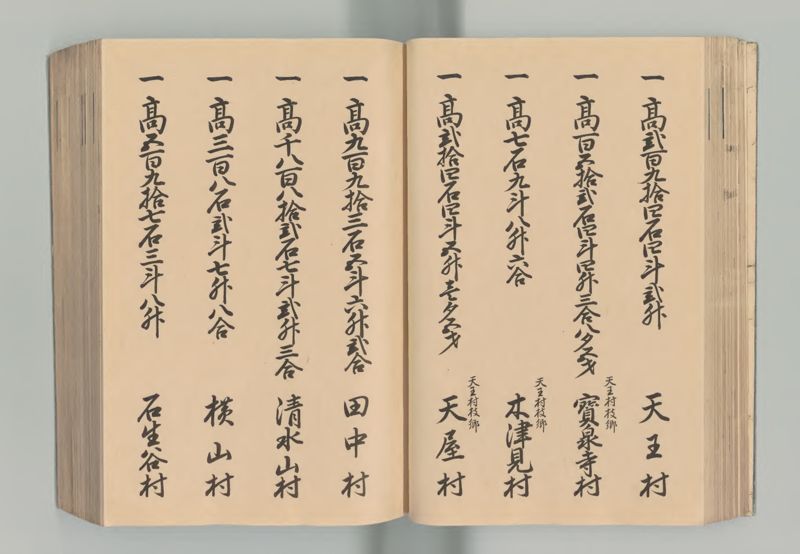 一 高弐百九拾四石四斗弐升 天王村
一 高百五拾弐石四斗四升三合八夕五才 天王村枝郷 寶泉寺村
一 高七石九斗八升六合 天王村枝郷 木津見村
一 高弐拾四石四斗五升壱夕五才 天王村枝郷 天屋村
一 高九百九拾三石五斗六升弐合 田中村
一 高千八百八拾弐石七斗弐升三合 清水山村
一 高三百八石弐斗七升八合 横山村
一 高五百九拾七石三斗八升 石生谷村